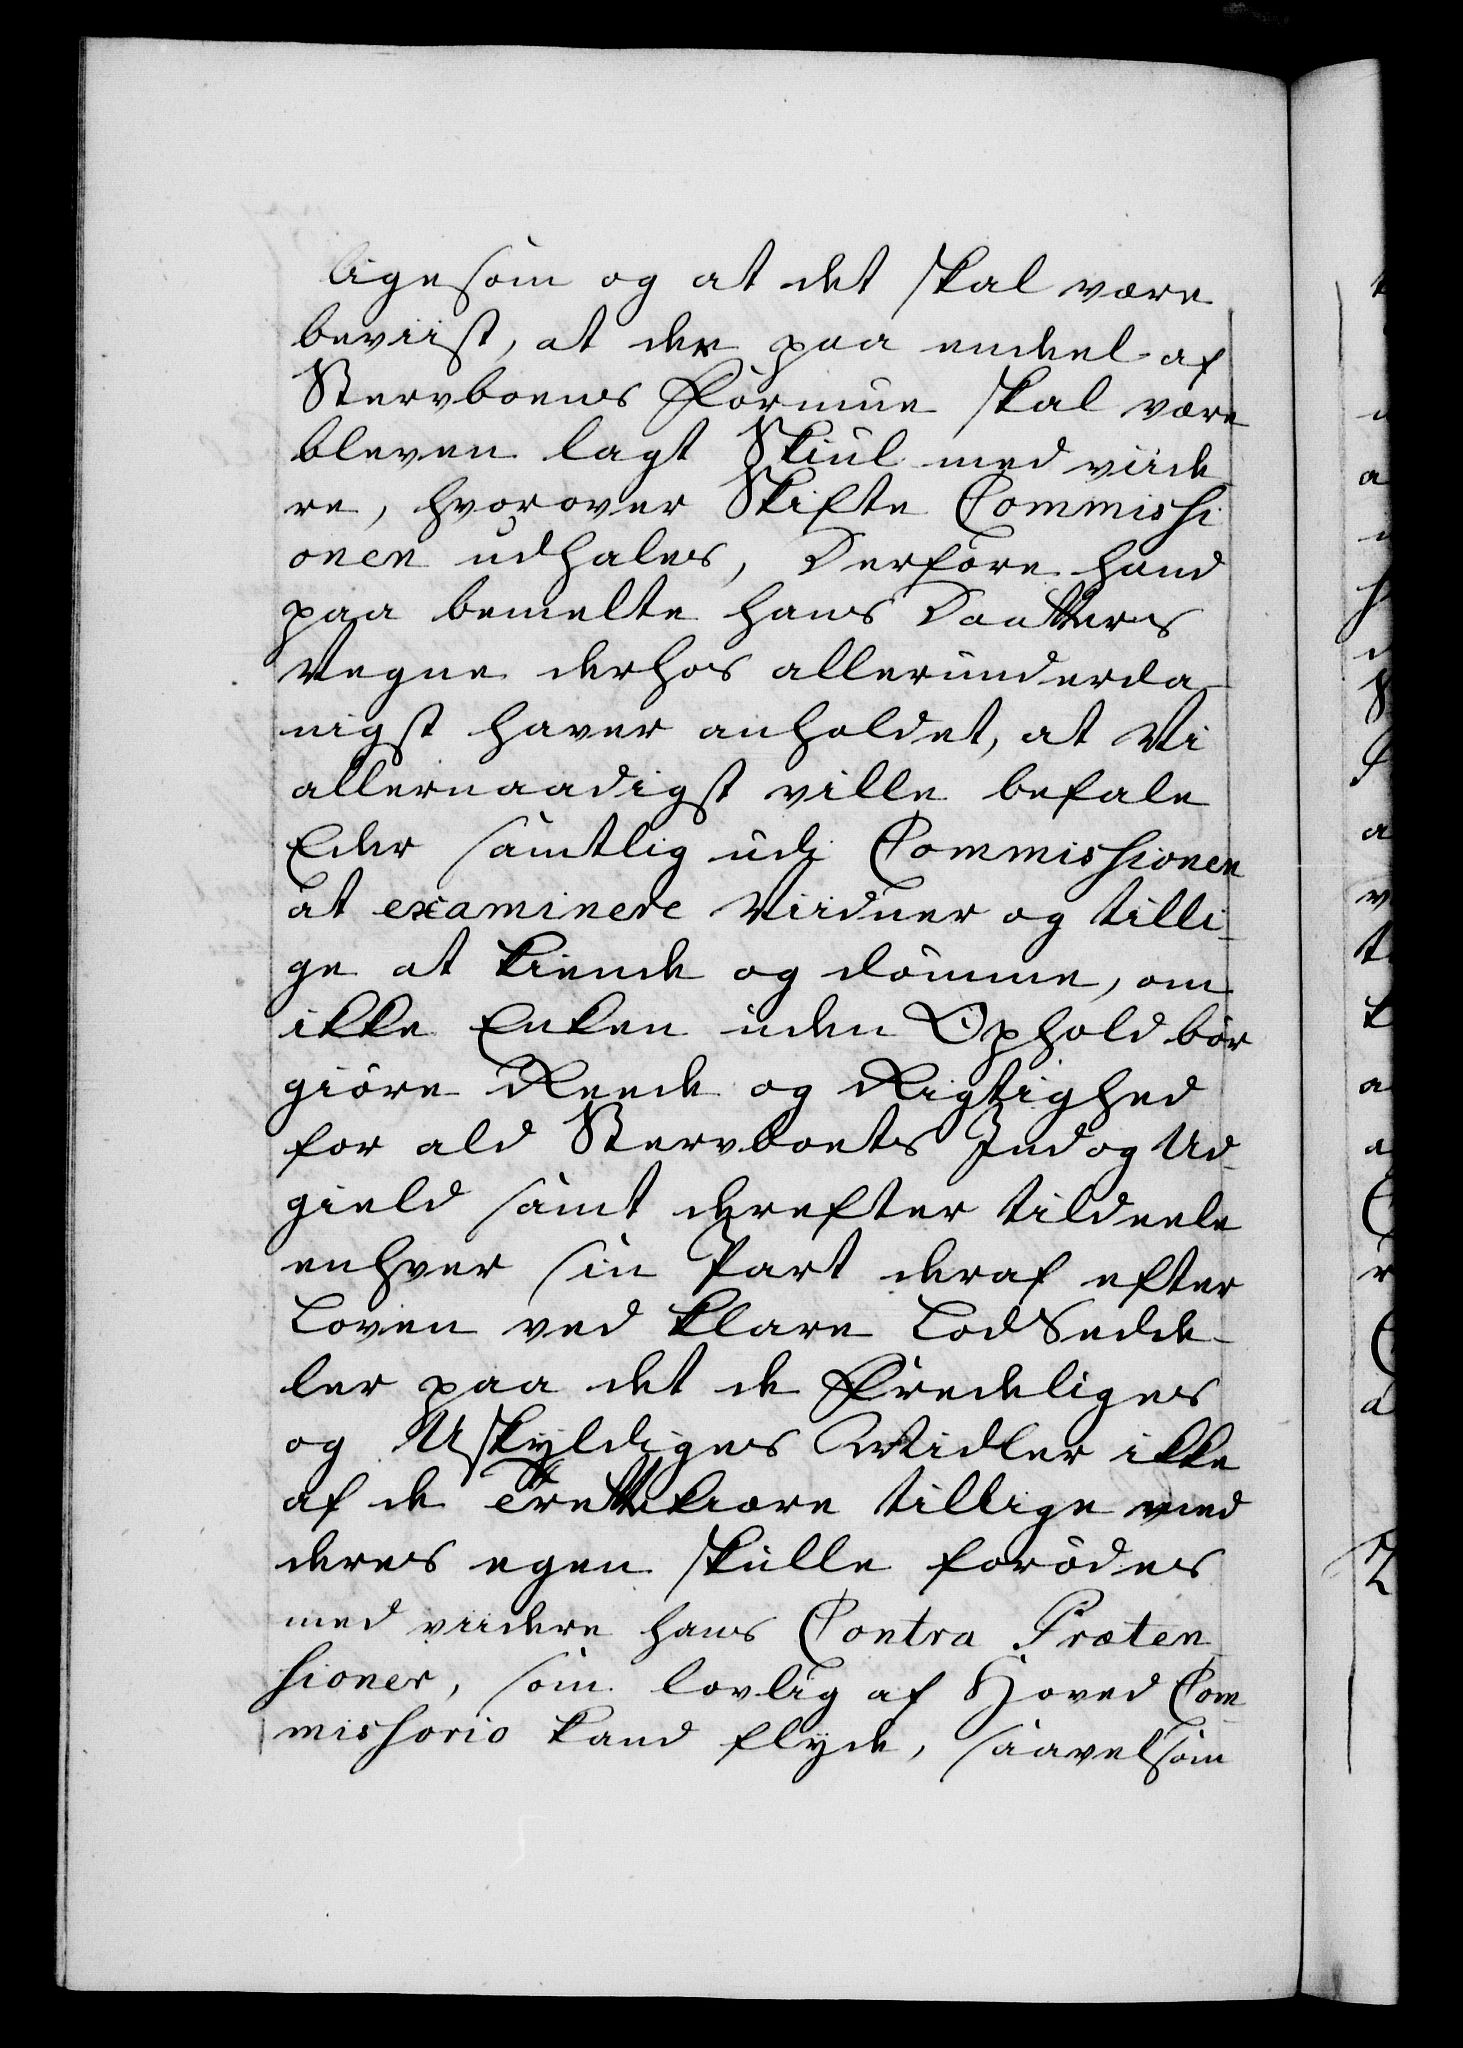 ligesom og at det skal være
beviist, at der paa endeel af
Stervboens Formue skal være
bleven lagt Skiul med viide
re, hvorover Skifte Commissi
onen udhales, Derfore hand
paa bemelte hans Daatters
Vegne derhos allerunderda-
nigst haver anholdet, at Vi
allernaadigst ville befale
Eder samtlig udj Commissionen
at examinere Viidner og tilli-
ge at kiende og dömme, om
ikke Enken uden Ophold bör
giöre Reede og Rigtighed
for ald Stervboets Ind og Ud-
gield samt derefter tildeele
enhver sin Part deraf efter
Loven ved klare LodSedde-
ler paa det de Fredeliges
og Uskyldiges Midler ikke
af de Trettekiære tillige med
deres egen skulle forödes
med viidere hans Contra Præten
sioner, som lovlig af Hoved Com-
missorio kand flyde, saavelsom